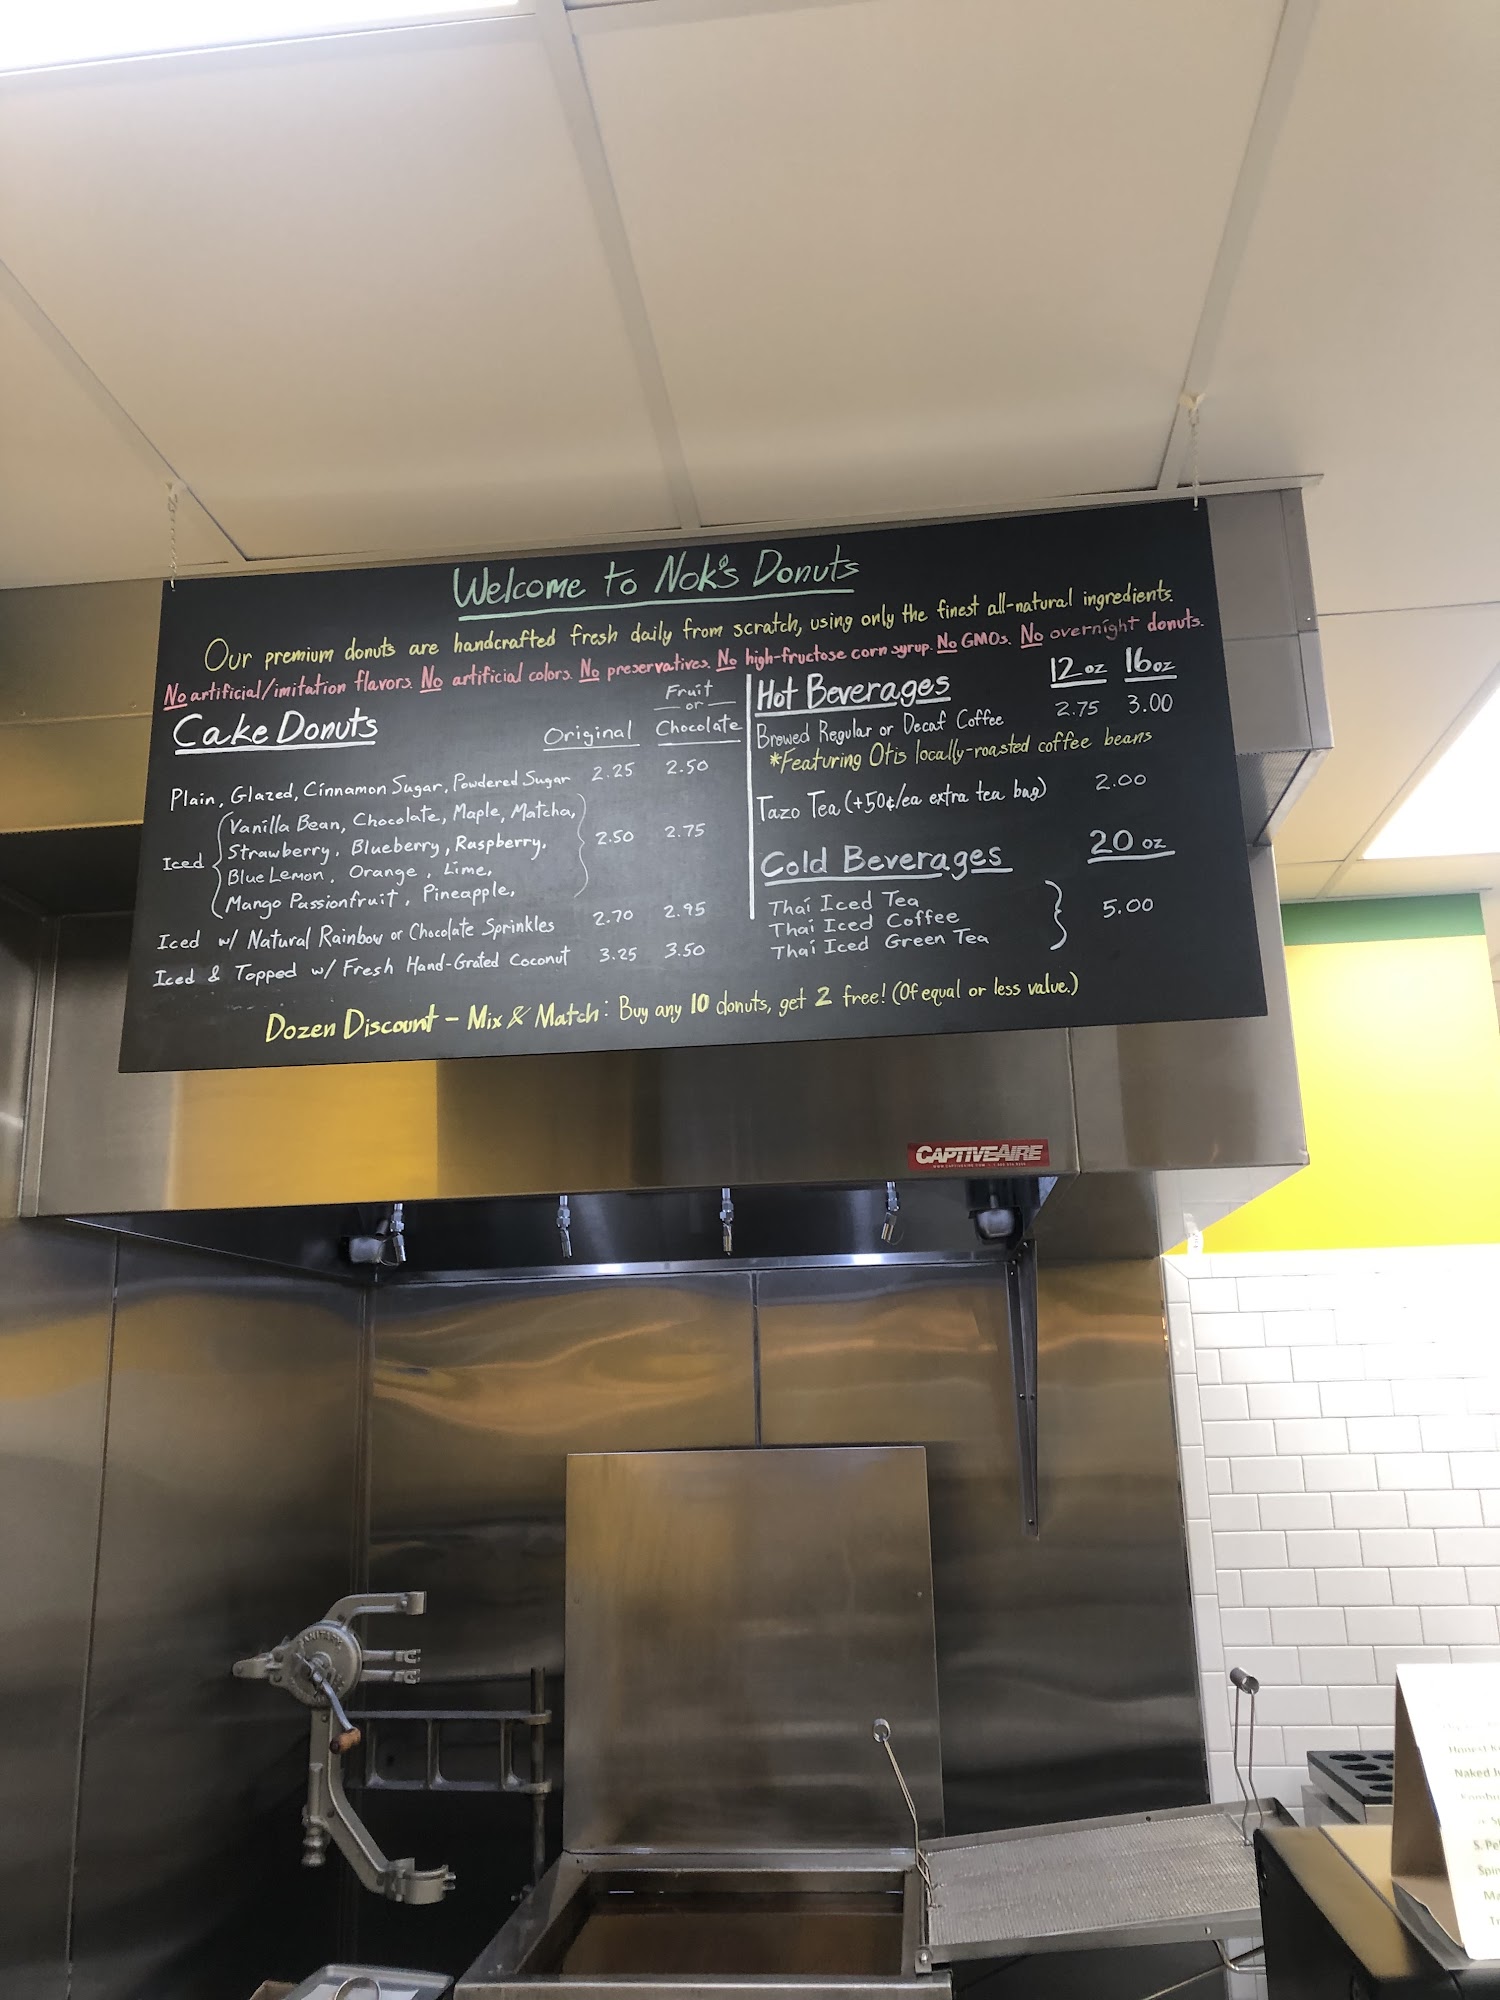 Welcome to Nok's Donuts
Our premium donuts are handcrafted fresh daily from scratch, using only the finest all-natural ingredients.
No artificial/imitation flavors. No artificial colors. No preservatives. No high-fructose corn syrup. No GMOs. No overnight donuts.
Cake Donuts
Original
Fruit
or
Chocolate
Plain, Glazed, Cinnamon Sugar, Powdered Sugar 2.25 2.50
Iced
Vanilla Bean, Chocolate, Maple, Matcha,
Strawberry, Blueberry, Raspberry,
Blue Lemon, Orange, Lime,
Mango Passionfruit, Pineapple,
2.50 2.75
Iced w/ Natural Rainbow or Chocolate Sprinkles 2.70 2.95
Iced & Topped w/ Fresh Hand-Grated Coconut 3.25 3.50
Hot Beverages 12 oz 16 oz
Brewed Regular or Decaf Coffee 2.75 3.00
*Featuring Otis locally-roasted coffee beans
Tazo Tea (+50¢/ea extra tea bag) 2.00
Cold Beverages 20 oz
Thai Iced Tea
Thai Iced Coffee
Thai Iced Green Tea
5.00
Dozen Discount - Mix & Match: Buy any 10 donuts, get 2 free! (Of equal or less value.)
CAPTIVEAIRE
Naked
S. Pe